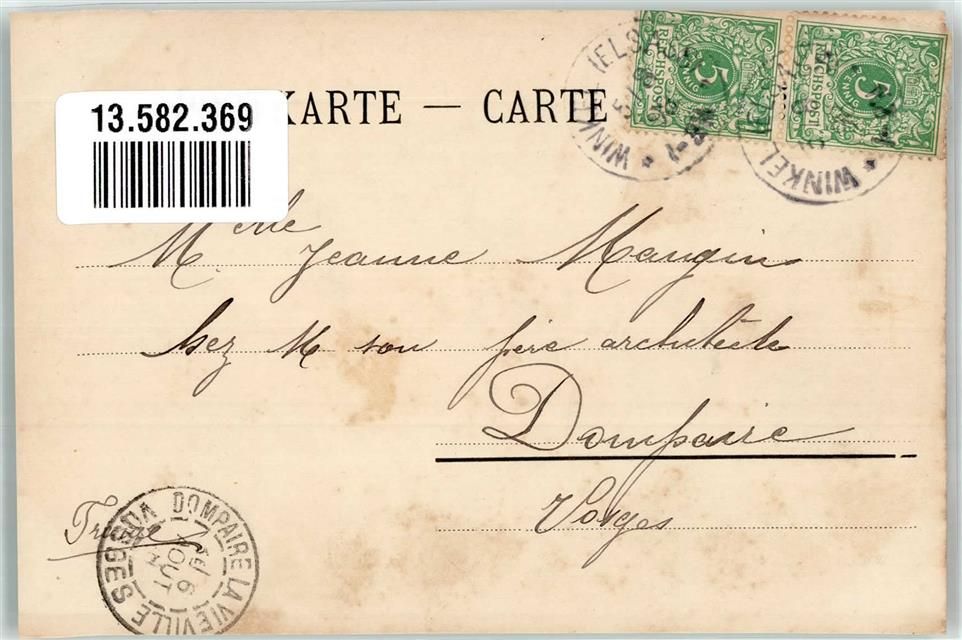 13.582.369
KARTE — CARTE
REICHSPOST 5 PFENNIG
REICHSPOST 5 PFENNIG
WINKEL (ELSASS)
WINKEL
Melle
M. Jeanne Mangin
chez M son père architecte
Dompaire
Vosges
France
DOMPAIRE LAVIEVILLE VOSGES
6
AOUT